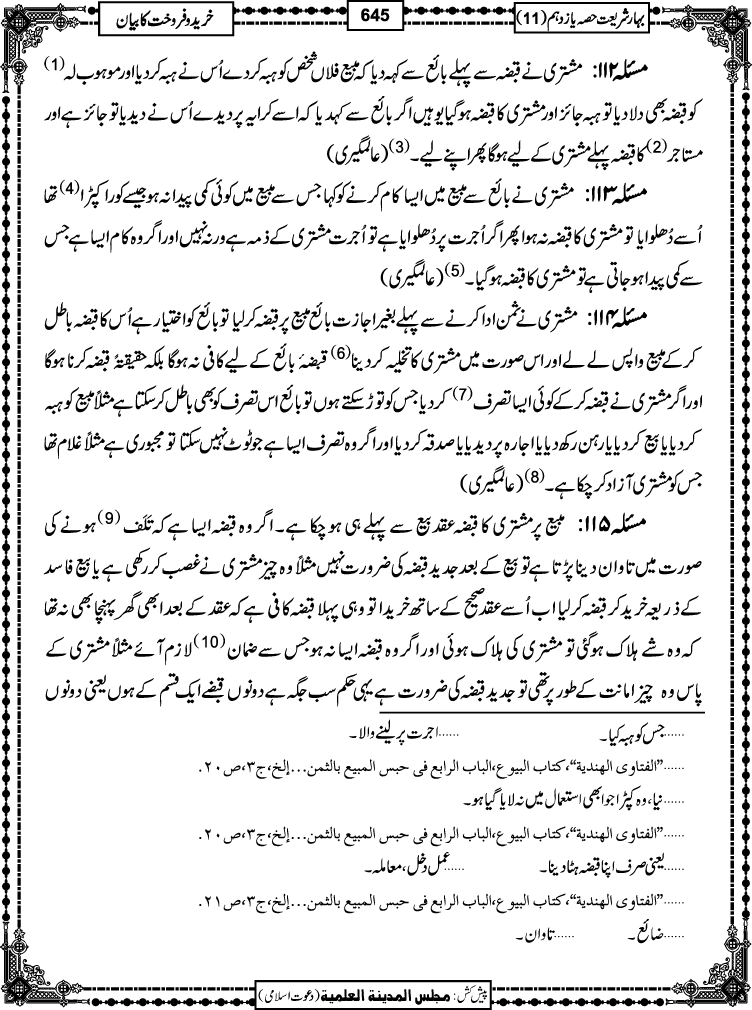 بہارِ شریعت حصہ یازدہم (11)
645
خرید و فروخت کا بیان
مسئلہ ۱۱۲: مشتری نے قبضہ سے پہلے بائع سے کہہ دیا کہ مبیع فلاں شخص کو ہبہ کر دے اُس نے ہبہ کر دیا اور موہوب لہ (1)
کو قبضہ بھی دلا دیا تو ہبہ جائز اور مشتری کا قبضہ ہو گیا یوہیں اگر بائع سے کہد یا کہ اسے کرایہ پر دیدے اُس نے دیدیا تو جائز ہے اور
مستاجر (2) کا قبضہ پہلے مشتری کے لیے ہو گا پھر اپنے لیے۔ (3) (عالمگیری)
مسئلہ ۱۱۳: مشتری نے بائع سے مبیع میں ایسا کام کرنے کو کہا جس سے مبیع میں کوئی کمی پیدا نہ ہو جیسے کورا کپڑا (4) تھا
اُسے دُھلوایا تو مشتری کا قبضہ نہ ہوا پھر اگر اُجرت پر دُھلوایا ہے تو اُجرت مشتری کے ذمہ ہے ورنہ نہیں اور اگر وہ کام ایسا ہے جس
سے کمی پیدا ہو جاتی ہے تو مشتری کا قبضہ ہو گیا۔ (5) (عالمگیری)
مسئلہ ۱۱۴: مشتری نے ثمن ادا کرنے سے پہلے بغیر اجازت بائع مبیع پر قبضہ کر لیا تو بائع کو اختیار ہے اُس کا قبضہ باطل
کر کے مبیع واپس لے لے اور اس صورت میں مشتری کا تخلیہ کر دینا (6) قبضۂ بائع کے لیے کافی نہ ہو گا بلکہ حقیقۃً قبضہ کرنا ہو گا
اور اگر مشتری نے قبضہ کر کے کوئی ایسا تصرف (7) کر دیا جس کو توڑ سکتے ہوں تو بائع اس تصرف کو بھی باطل کر سکتا ہے مثلاً مبیع کو ہبہ
کر دیا یا بیع کر دیا یا رہن رکھ دیا یا اجارہ پر دیدیا یا صدقہ کر دیا اور اگر وہ تصرف ایسا ہے جو ٹوٹ نہیں سکتا تو مجبوری ہے مثلاً غلام تھا
جس کو مشتری آزاد کر چکا ہے۔ (8) (عالمگیری)
مسئلہ ۱۱۵: مبیع پر مشتری کا قبضہ عقد بیع سے پہلے ہی ہو چکا ہے۔ اگر وہ قبضہ ایسا ہے کہ تَلَف (9) ہونے کی
صورت میں تاوان دینا پڑتا ہے تو بیع کے بعد جدید قبضہ کی ضرورت نہیں مثلاً وہ چیز مشتری نے غصب کر رکھی ہے یا بیع فاسد
کے ذریعہ خرید کر قبضہ کر لیا اب اُسے عقد صحیح کے ساتھ خریدا تو وہی پہلا قبضہ کافی ہے کہ عقد کے بعد ابھی گھر پہنچا بھی نہ تھا
کہ وہ شے ہلاک ہو گئی تو مشتری کی ہلاک ہوئی اور اگر وہ قبضہ ایسا نہ ہو جس سے ضمان (10) لازم آئے مثلاً مشتری کے
پاس وہ چیز امانت کے طور پر تھی تو جدید قبضہ کی ضرورت ہے یہی حکم سب جگہ ہے دونوں قبضے ایک قسم کے ہوں یعنی دونوں
......جس کو ہبہ کیا۔ ......اجرت پر لینے والا۔
......"الفتاوی الهندية"، کتاب البیوع، الباب الرابع فی حبس المبیع بالثمن...إلخ، ج۳، ص۲۰.
......نیا، وہ کپڑا جو ابھی استعمال میں نہ لایا گیا ہو۔
......"الفتاوی الهندية"، کتاب البیوع، الباب الرابع فی حبس المبیع بالثمن...إلخ، ج۳، ص۲۰.
......یعنی صرف اپنا قبضہ ہٹا دینا۔ ......عمل دخل، معاملہ۔
......"الفتاوی الهندية"، کتاب البیوع، الباب الرابع فی حبس المبیع بالثمن...إلخ، ج۳، ص۲۱.
......ضائع۔ ......تاوان۔
پیش کش: مجلس المدینة العلمیة (دعوت اسلامی)